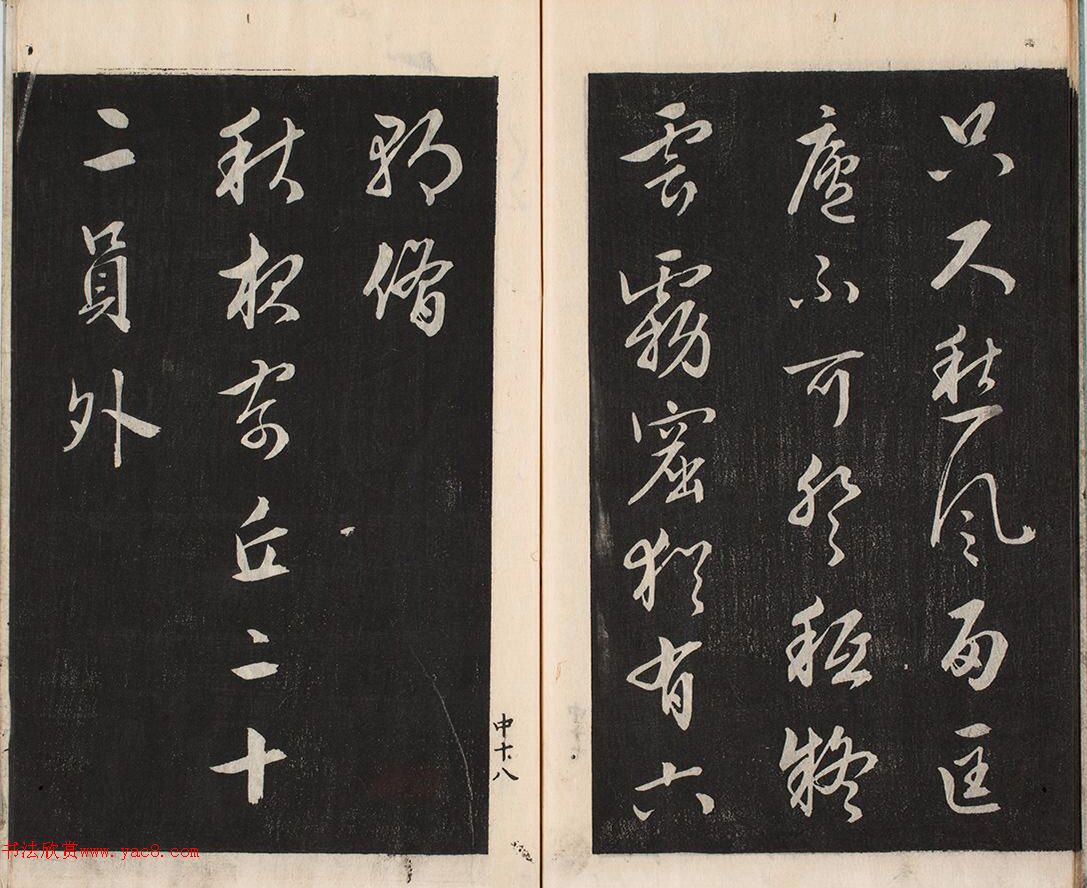 只尺愁風雨匡
廬不可登秖疑
雲霧窟猶有六
朝僧
秋夜寄丘二十
二員外
中十八
书法欣赏www.yac8.com